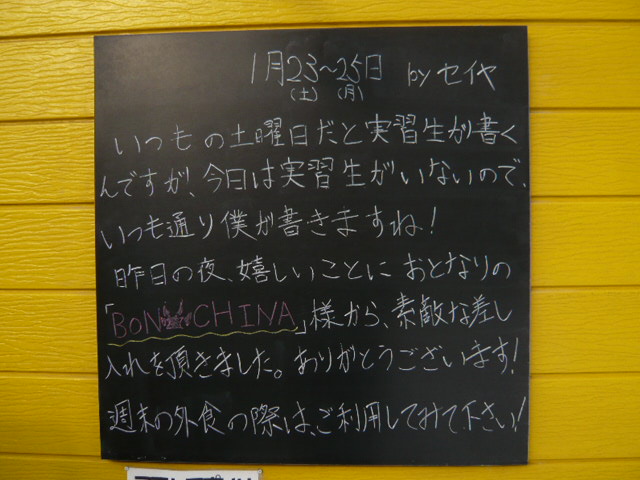 1月23～25日 by セイヤ
(土) (月)
いつもの土曜日だと実習生が書く
んですが、今日は実習生がいないので、
いつも通り僕が書きますね!
昨日の夜、嬉しいことにおとなりの
「BON CHINA」様から、素敵な差し
入れを頂きました。ありがとうございます!
週末の外食の際は、ご利用してみて下さい!